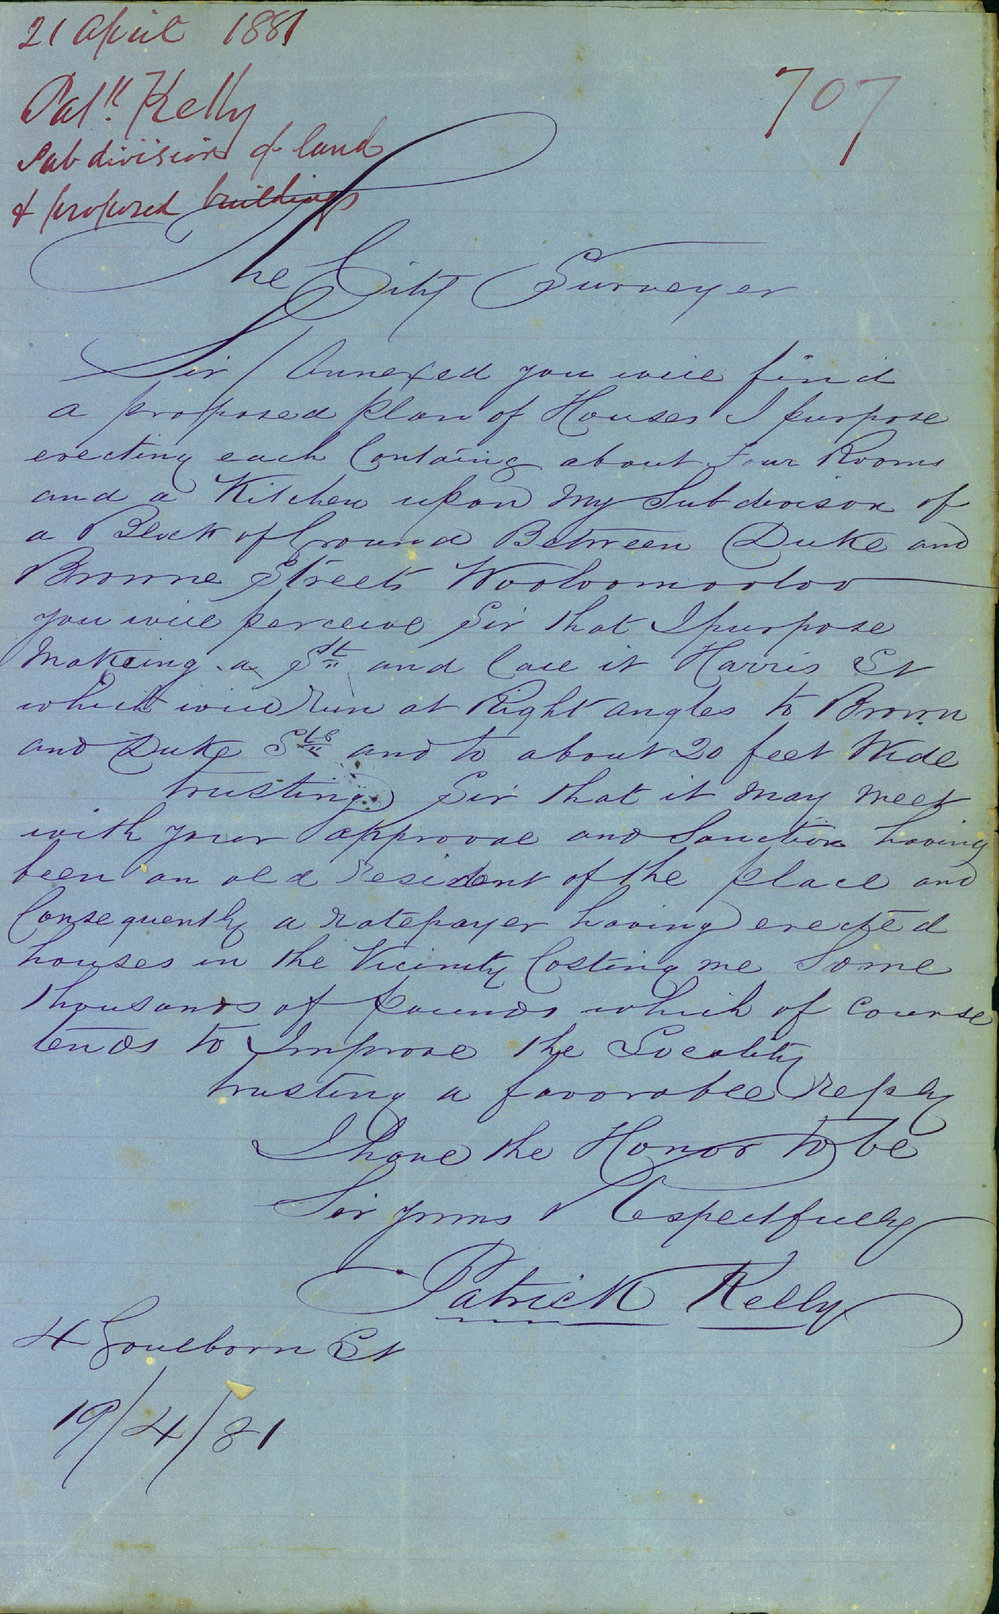 21 April 1881
707
Patk. Kelly
Subdivision of land
& proposed buildings
The City Surveyer
Sir / Annexed you will find
a proposed Plan of Houses I purpose
erecting each Containg about Four Rooms
and a Kitchen upon My Subdivison of
a Block of Ground Between Duke and
Browne Streets Wooloomooloo
you will perceive Sir that I purpose
Makeing a St and Call it Harris St
which will Run at Right angles to Brown
and Duke Sts and to about 20 feet Wide
trusting Sir that it May Meet
with your approval and Sanction having
been an old resident of the place and
Consequently a ratepayer having erected
houses in the Vicinity Costing me Some
thousands of pounds which of course
tends to Improve the Locality
trusting a favorable reply
I have the Honor to be
Sir yours Respectfully
Patrick Kelly
4 Goulborn St
19/4/81